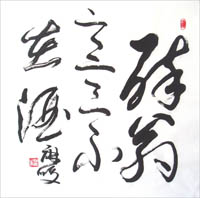 醉翁
之意不
在酒